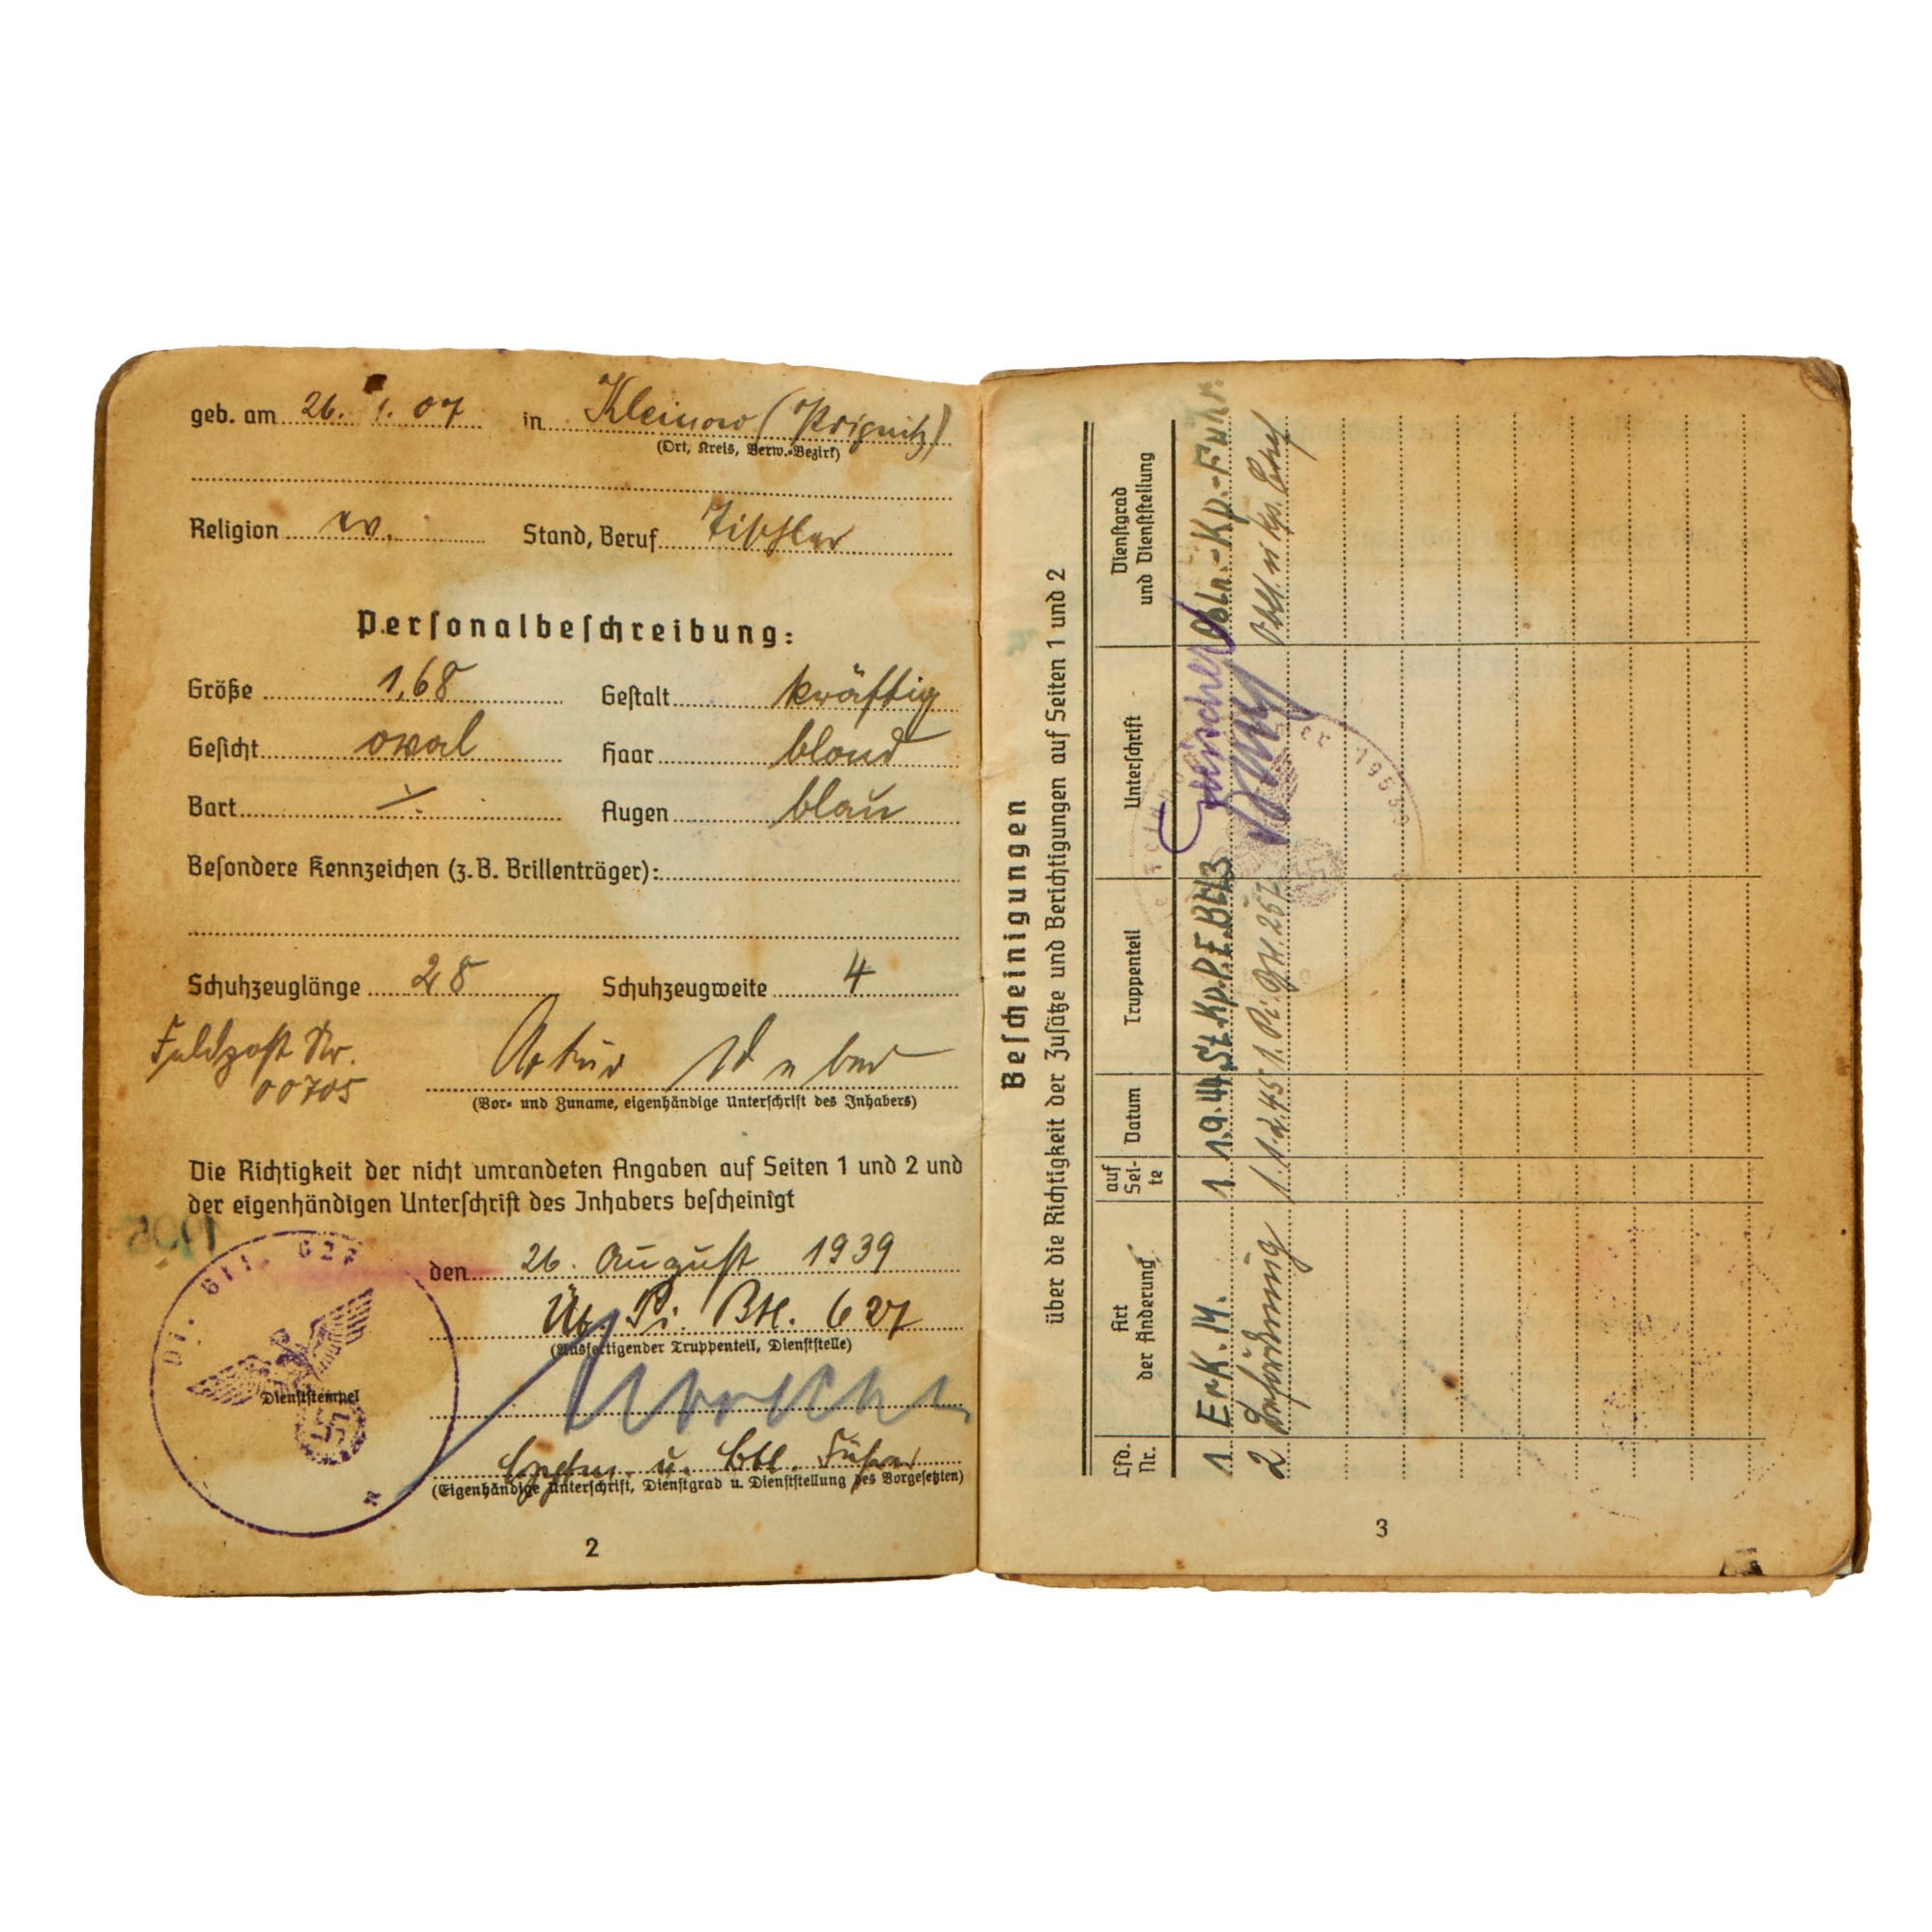 geb. am 26. 1. 07 in Kleinow (Prignitz)
(Ort, Kreis, Verw.-Bezirk)
Religion ev. Stand, Beruf Tischler
Personalbeschreibung:
Größe 1,68 Gestalt kräftig
Gesicht oval Haar blond
Bart ./. Augen blau
Besondere Kennzeichen (z. B. Brillenträger):
Schuhzeuglänge 28 Schuhzeugweite 4
Feldpost Nr.
00705
Artur Weber
(Vor- und Zuname, eigenhändige Unterschrift des Inhabers)
Die Richtigkeit der nicht umrandeten Angaben auf Seiten 1 und 2 und
der eigenhändigen Unterschrift des Inhabers bescheinigt
den 26. August 1939
Üb. Pi. Btl. 627
(Ausfertigender Truppenteil, Dienststelle)
Dienststempel
Hptm. u. Btl. Führer
(Eigenhändige Unterschrift, Dienstgrad u. Dienststellung des Vorgesetzten)
2
Bescheinigungen
über die Richtigkeit der Zusätze und Berichtigungen auf Seiten 1 und 2
Lfd. Nr. Art der Änderung auf Sei-te Datum Truppenteil Unterschrift Dienstgrad und Dienststellung
1 Erk. M. 1 1.9.44 St.Kp.P.E.Btl.3 Obln.-Kp.-Führ.
2 Beförderung 1 1.2.45 1. Pi. 257 Oblt. u. Kp. Chef
3